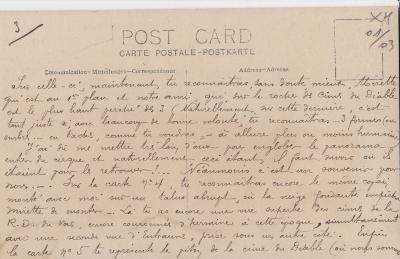 3
XH
01/
03
POST CARD
CARTE POSTALE-POSTKARTE
Communication-Mitteilungen-Correspondence Address-Adresse
Sur celle-ci, maintenant, tu reconnaîtras sans doute mieux,
qui est au 1er plan et notre ami qui sur le rocher de Cime du Diable
est le plus haut perché des 3 (Naturellement, sur cette dernière, c'est
tout juste si avec beaucoup de bonne volonté tu reconnaîtras 3 formes (ou
ombres ou taches, comme tu voudras,) à allure plus ou moins humaine,
J'ai dû me mettre très loin, pour englober le panorama
entier du cirque et naturellement, ceci étant, il faut savoir où ils
étaient pour les retrouver!... Néanmoins c'est un souvenir pour
nous.... Sur la carte No 4, tu reconnaîtras encore le même copain,
monté avec moi sur un talus abrupt, où la neige fondante
de monter. Là tu as encore une vue superbe des cimes de la
R. D. du Vas, encore couronnées d'hermine à cette époque, simultanément
avec une seconde vue d'Entraunes, prise sous un autre côté. Enfin
la carte No 5 te représente le piton de la cime du Diable (où nous sommes